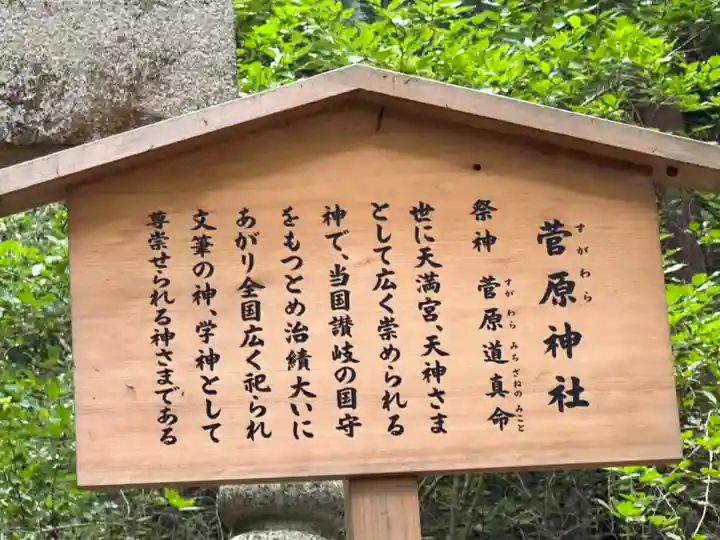 菅原神社
すがわら
祭神 菅原道真命
すがわらみちざねのみこと
世に天満宮、天神さま
として広く崇められる
神で、当国讃岐の国守
をもつとめ治績大いに
あがり全国広く祀られ
文筆の神、学神として
尊崇せられる神さまである